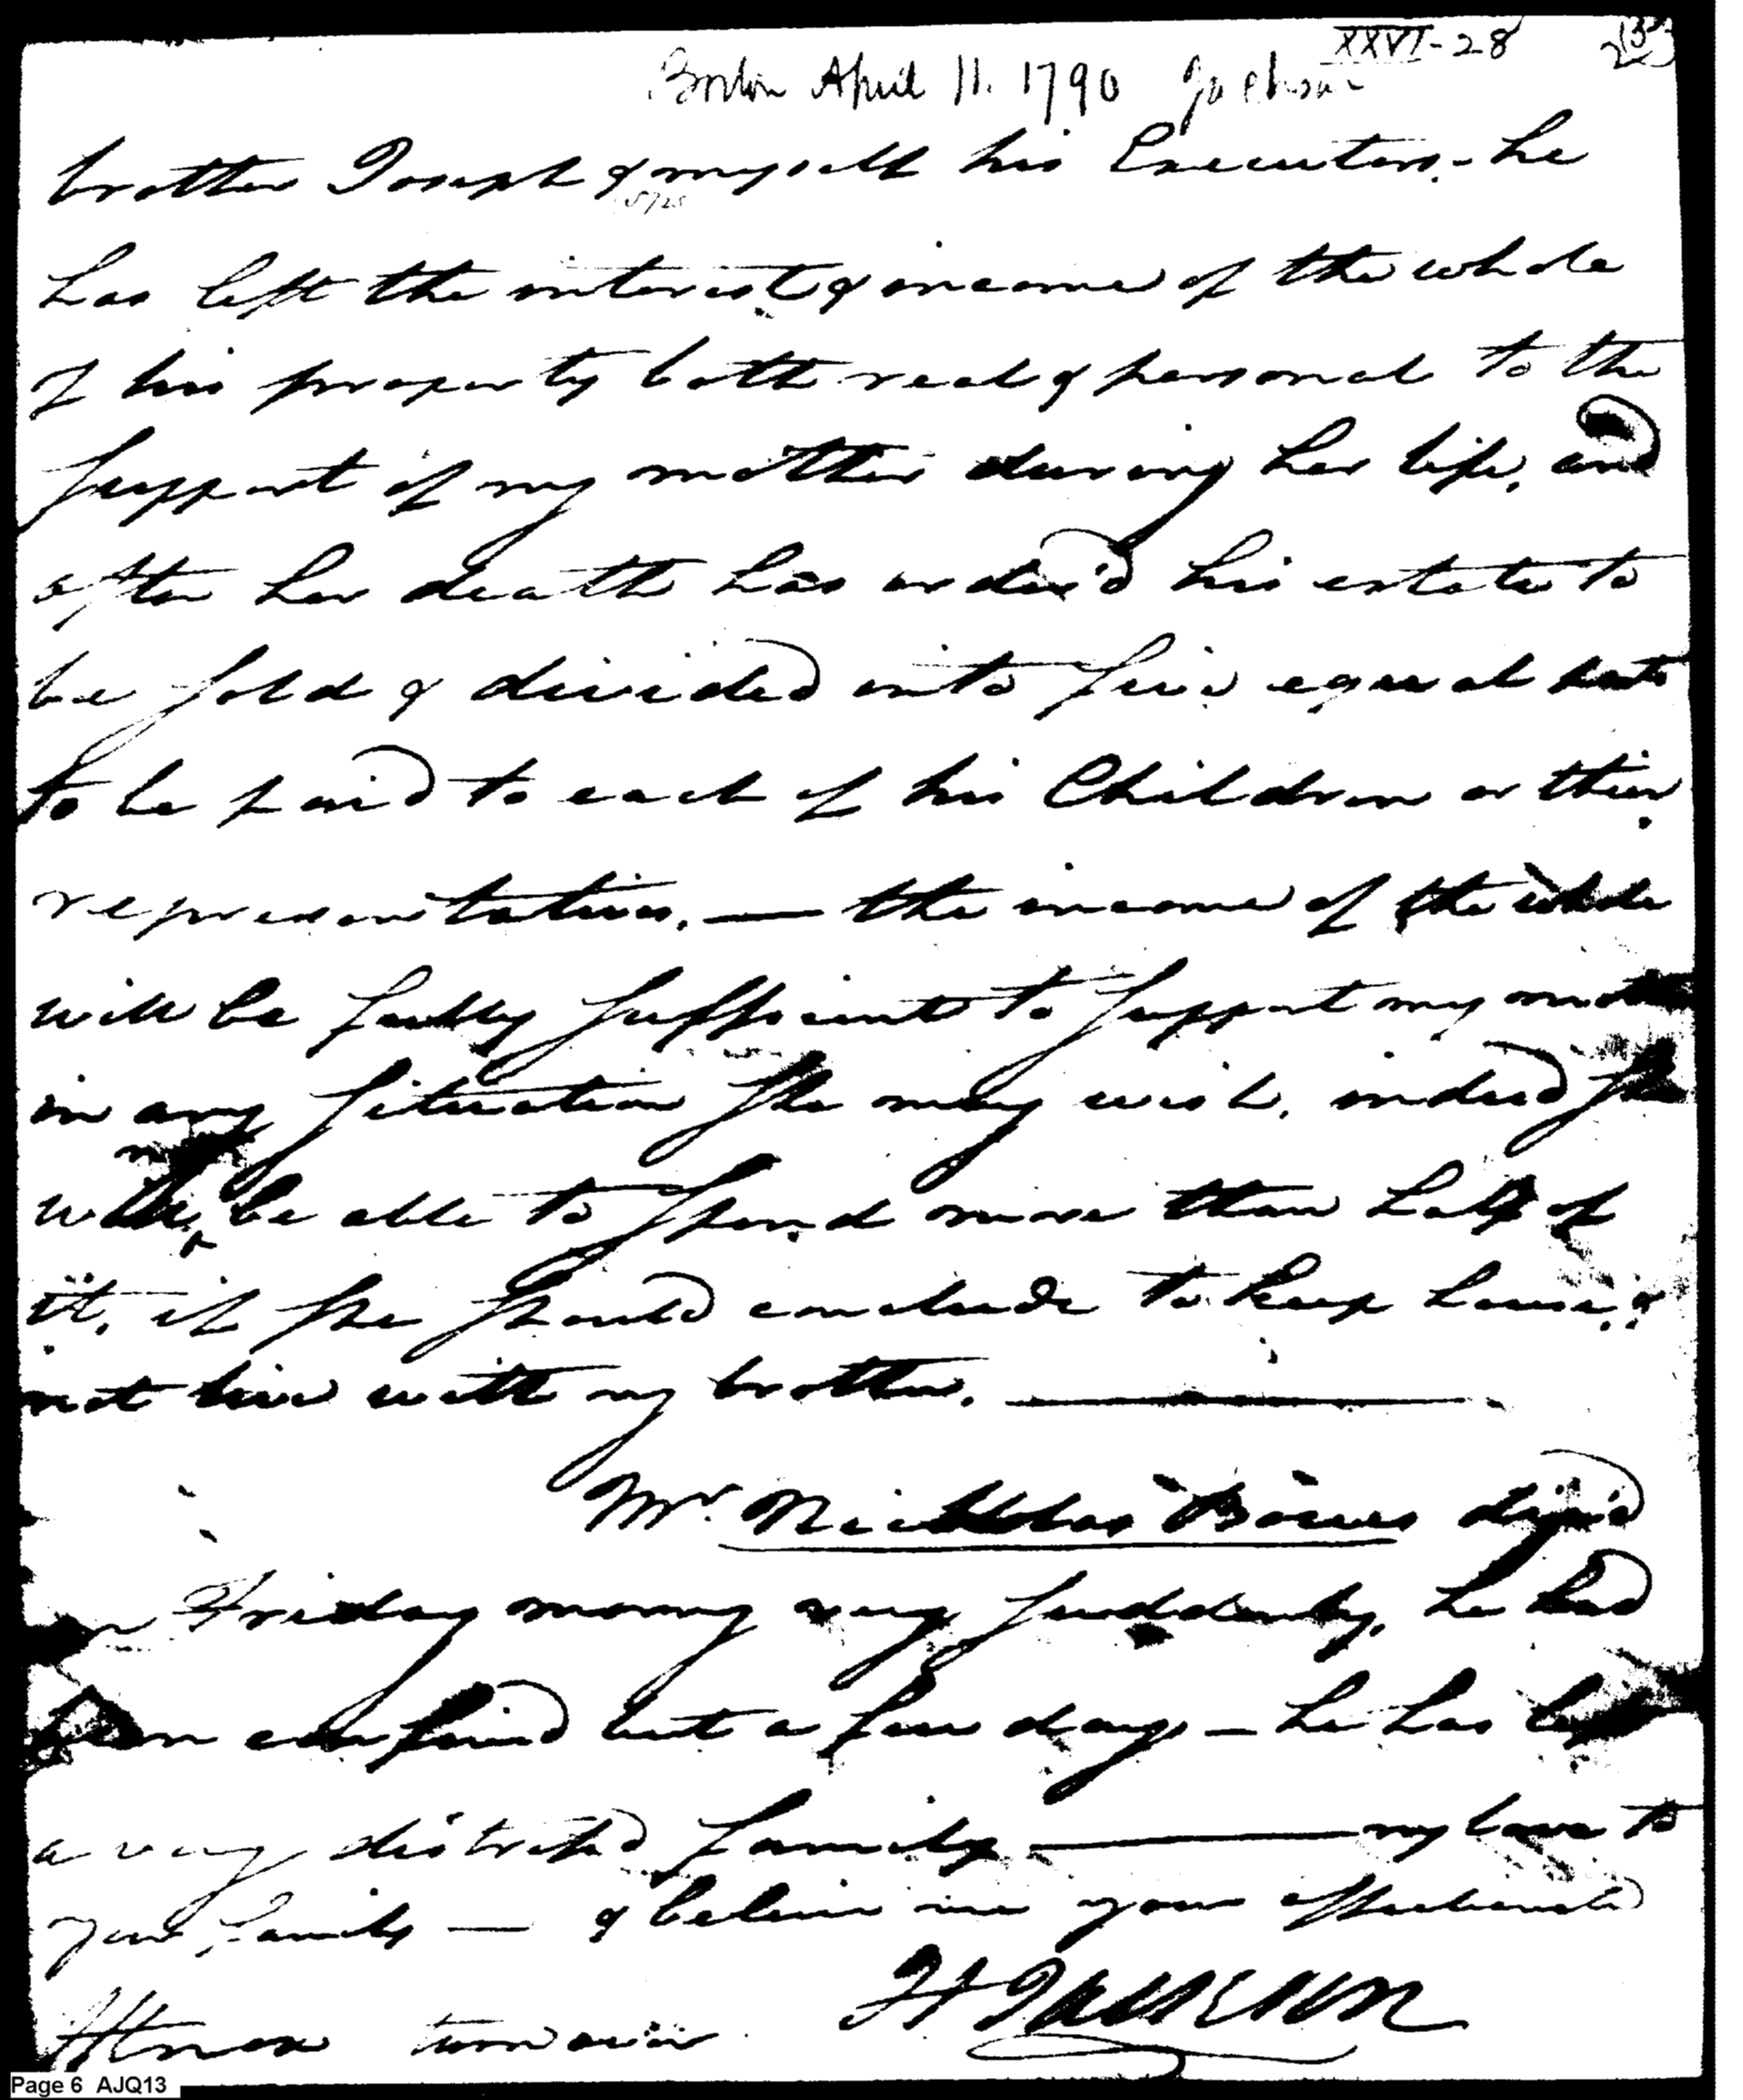 XXVI-28
Boston April 11. 1790 Jackson
brother Joseph & myself his Executors. - he
has left the interest & income of the whole
of his property both real & personal to the
support of my mother during her life, and
after her death has order'd his estate to
be sold & divided into five equal parts
to be paid to each of his Children or their
representatives. — the income of the whole
will be fully sufficient to support my mother
in any situation she may wish, indeed she
will not be able to spend more than half of
it, if she should conclude to keep house, &
not live with my brother. —
Mr. Nichholas Bowes dyed
on Friday morng very suddenly, he had
been confined but a few days - he has left
a very distress'd family — my love to
your family — & believe me your affectionate
H Jackson
HKnox turn over
Page 6 AJQ13